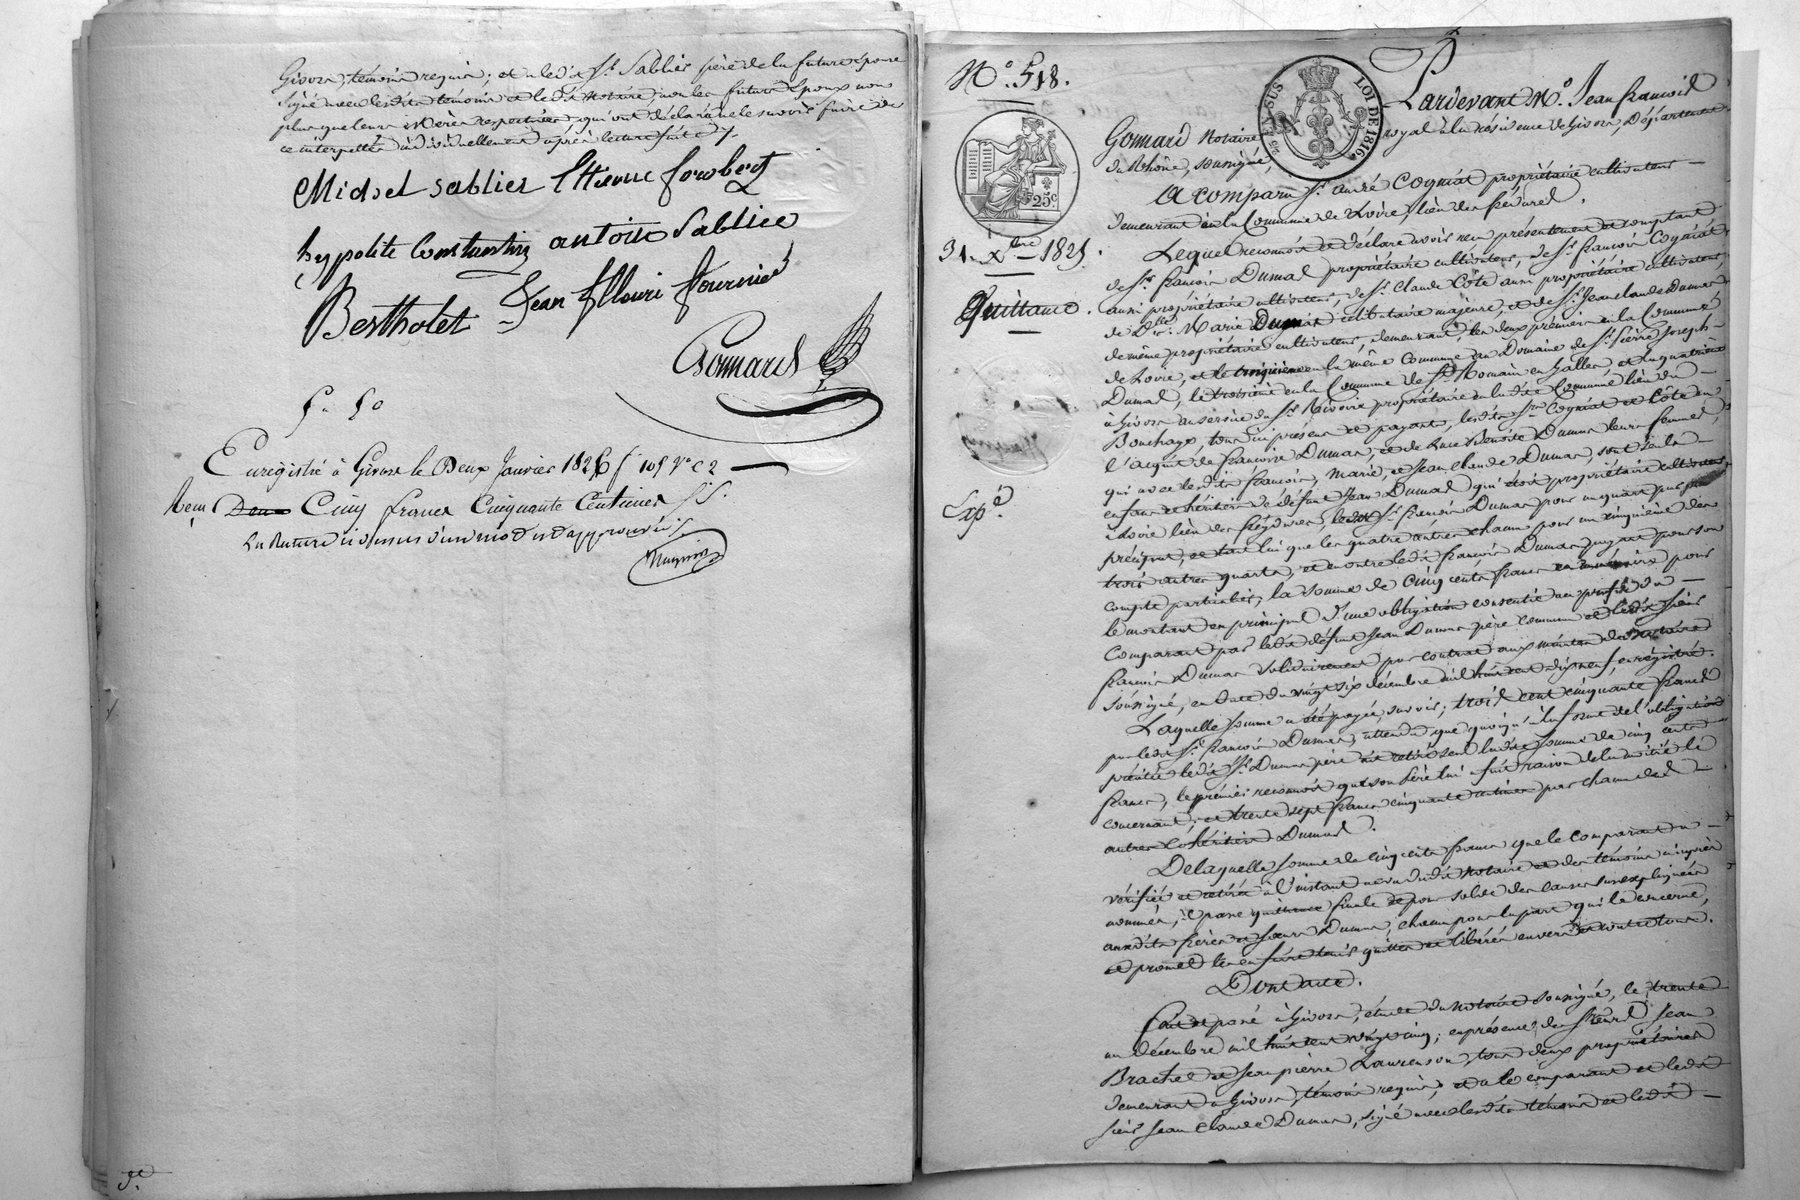 Givors, témoins requis; et a ledit Sr. Sablier père de la future épouse
signé avec lesdits témoins et ledit notaire, non les futurs époux non
plus que leurs mères respectives qui ont déclaré ne le savoir faire de
ce interpellés individuellement après lecture faite ./.
Michel sablier Etienne fombert
hyppolite Constantin antoine Sablier
Bertholet Jean fleuri fournier
Gomard
f. 50
Enregistré à Givors le Deux Janvier 1826 fo 105 Vo C 2
Reçu Deux Cinq francs Cinquante Centimes
La Rature ci dessus d'un mot est approuvée
5e.
No. 518.
25 EN SUS
LOI DE 1816
25c
31. Xbre 1825.
Quittance.
Expé.
Pardevant Me. Jean françois
Gomard Notaire royal à la résidence de Givors, Département
du Rhône, soussigné,
A comparu Sr. andré Cogniat propriétaire cultivateur
demeurant en la Commune de Loire, lieu des freydures.
Lequel reconnoit et déclare avoir reçu présentement et comptant
de Sr. françois Dumas propriétaire cultivateur, de Sr. françois Cogniat,
aussi propriétaire cultivateur, de Sr. Claude Côte aussi propriétaire cultivateur,
de Dlle. Marie Dumas célibataire majeure, et de Sr. Jean claude Dumas
de même propriétaire cultivateur, demeurant, les deux premiers en la Commune
de Loire, et le troisième en la même Commune au Domaine de Sr. Pierre Joseph
Dumas, le troisième en la Commune de St. Romain en Gallier, et la quatrième
à Givors au service du Sr. Rivoire propriétaire en ladite Commune lieu du
Bouchage, tous ici présens et payant, lesdits Srs. Cogniat et Côte en
l'acquit de françoise Dumas, et de Benoite Dumas leurs femmes,
qui avec lesdits françois, Marie, et Jean claude Dumas, sont seuls
enfans et héritiers de défunt Jean Dumas qui étoit propriétaire cultivateur
à Loire lieu des freydures, ledit Sr. françois Dumas pour un quart par
préciput, et tant lui que les quatre autres chacun pour un cinquième des
trois autres quarts, et en outre ledit françois Dumas payant pour son
compte particulier, la somme de Cinq cents francs en numéraire pour
le montant en principal d'une obligation consentie au profit du
Comparant par ledit défunt Jean Dumas père commun et ledit sieur
francois Dumas solidairement par contrat aux minutes du notaire
soussigné, en date du vingt six décembre mil huit cent dix neuf, enregistré.
Laquelle somme a été payée, savoir; trois cent cinquante francs
par ledit Sr. francois Dumas, attendu que quoiqu'à la forme de l'obligation
précitée ledit Sr. Dumas père ait retiré seul ladite somme de cinq cents
francs, le premier reconnoit que son père lui a fait raison de la moitié le
concernant; et trente sept francs cinquante centimes par chacun des
autres cohéritiers Dumas.
De laquelle somme de cinq cents francs que le comparant a
vérifiée et retirée à l'instant au vu dudit Notaire et des témoins ci après
nommés, il passe quittance finale et pour solde des causes susexpliquées
auxdits frères et soeurs Dumas, chacun pour la part qui le concerne,
et promet les en faire tenir quittes et libérés envers et contre tous.
Dont acte.
fait et passé à Givors, étude du notaire soussigné, le trente
un Décembre mil huit cent vingt cinq; en présence des sieurs Jean
Brachet et Jean pierre Laurenson, tous deux propriétaires
demeurant à Givors, témoins requis, et a le comparant et ledit
sieur Jean Claude Dumas, signé avec lesdits témoins et ledit